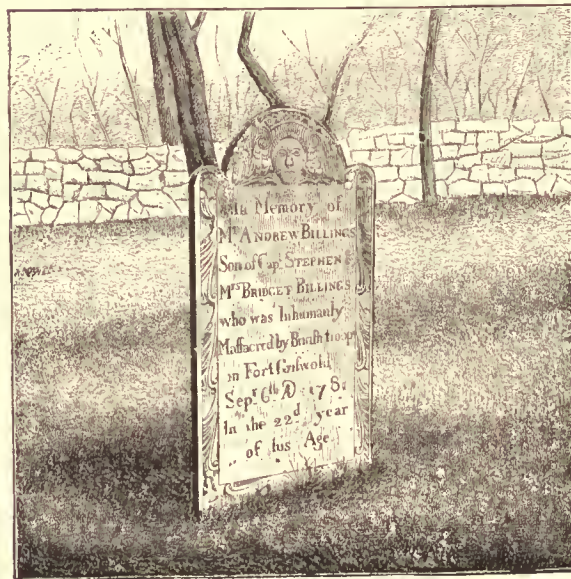 In Memory of
Mr ANDREW BILLINGS
Son of Capt STEPHEN &
Mrs BRIDGET BILLINGS
who was Inhumanly
Maſſacred by British troops
in Fort Griſwold
Sepr 6th AD 1781
In the 22d year
of his Age